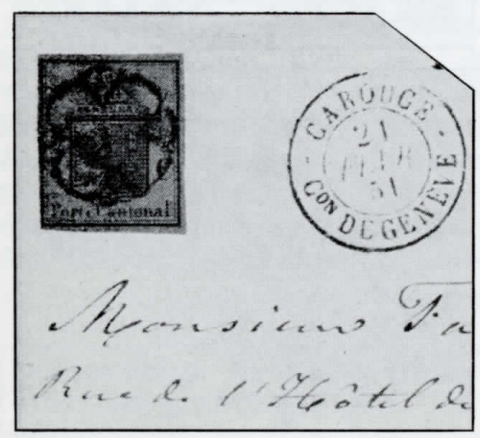 Port Cantonal
CAROUGE
21
51
Con DE GENÈVE
Monsieur Fa
Rue de l'Hôtel de